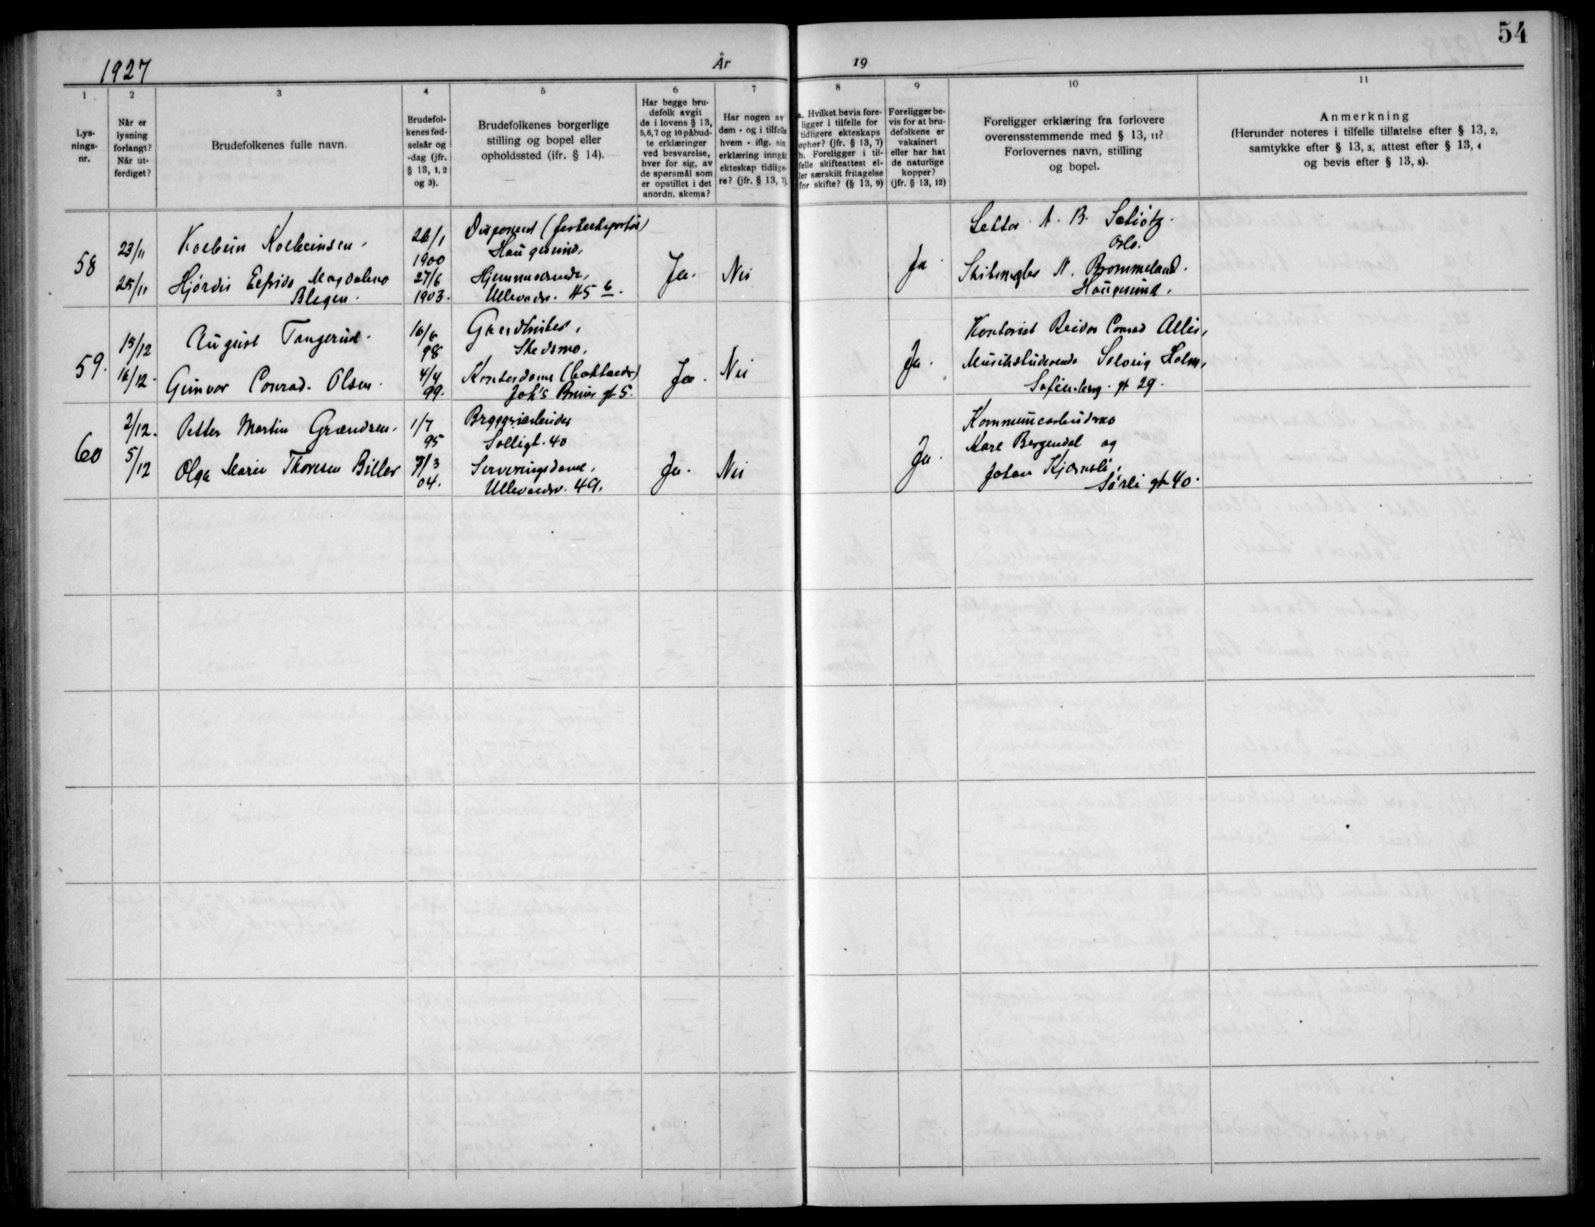 54
1927
År
19
1
2
3
4
5
6
7
8
9
10
11
Lys-
nings-
nr.
Når er
lysning
forlangt?
Når ut-
ferdiget?
Brudefolkenes fulle navn.
Brudefol-
kenes fød-
selsår og
-dag (jfr.
§ 13, 1, 2
og 3).
Brudefolkenes borgerlige
stilling og bopel eller
opholdssted (ifr. § 14).
Har begge bru-
defolk avgit
de i lovens § 13,
5,6,7 og 10 påbud-
te erklæringer
ved besvarelse,
hver for sig, av
de spørsmål som
er opstillet i det
anordn. skema?
Har nogen av
dem - og i tilfelle
hvem - iflg. sin
erklæring inngåt
ekteskap tidlige-
re? (jfr. § 13, 7)
a. Hvilket bevis fore-
ligger i tilfelle for
tidligere ekteskaps
ophør? (jfr. § 13, 7)
b. Foreligger i til-
felle skifteattest el-
ler særskilt fritagelse
for skifte? (§ 13, 9)
Foreligger be-
vis for at bru-
defolkene er
vaksinert
eller har hat
de naturlige
kopper?
(jfr. § 13, 12)
Foreligger erklæring fra forlovere
overensstemmende med § 13, 11?
Forlovernes navn, stilling
og bopel.
Anmerkning
(Herunder noteres i tilfelle tillatelse efter § 13, 2,
samtykke efter § 13, 3, attest efter § 13, 4
og bevis efter § 13, 8).
58
23/11
25/11
Kolbein Kolbeinsen.
Hjørdis Elfrida Magdalene
Blegen.
26/1
1900
27/6
1903.
Disponent
Haugesund.
Hjemmeværende,
Ullevadsv. 45 6.
Ja.
Nei
Ja
A. B.
Oslo.
N. Brommeland.
Haugesund.
59.
15/12
16/12.
August Tangerud.
Gunvor Conrad. Olsen.
16/6
98
4/4
99.
Gaardbruker,
Skedsmo.
Kontordame
Joh's Bruns gt 5.
Ja.
Nei
Ja.
Kontorist Reidar Conrad
Musikstuderende Solveig Holm,
Sofienberg. gt 29.
60
2/12.
5/12
Petter Martin
Olga Marie Thoresen Biller
1/7
95
9/3
04.
Bryggeriarbeider
Solligt. 40
Serveringsdame,
Ullevaadsv. 49.
Ja.
Nei
Ja.
Kommunearbeiderne
Kare Bergendal og
Johan Kjærnsli,
Sørli gt 40.